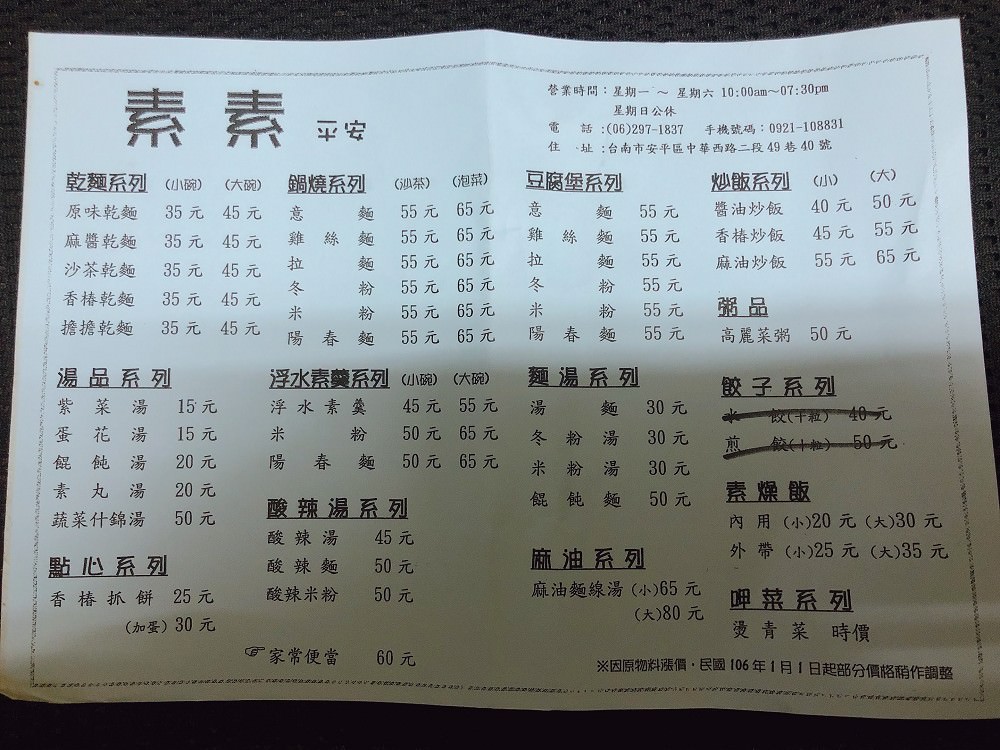 素素 安平
營業時間：星期一 ～ 星期六 10:00am～07:30pm
星期日公休
電 話:(06)297-1837 手機號碼：0921-108831
住 址:台南市安平區中華西路二段49巷40號
乾麵系列 (小碗) (大碗)
原味乾麵 35元 45元
麻醬乾麵 35元 45元
沙茶乾麵 35元 45元
香椿乾麵 35元 45元
擔擔乾麵 35元 45元
鍋燒系列 (沙茶) (泡菜)
意 麵 55元 65元
雞絲麵 55元 65元
拉 麵 55元 65元
冬 粉 55元 65元
米 粉 55元 65元
陽春麵 55元 65元
豆腐堡系列
意 麵 55元
雞絲麵 55元
拉 麵 55元
冬 粉 55元
米 粉 55元
陽春麵 55元
炒飯系列 (小) (大)
醬油炒飯 40元 50元
香椿炒飯 45元 55元
麻油炒飯 55元 65元
粥品
高麗菜粥 50元
湯品系列
紫菜湯 15元
蛋花湯 15元
餛飩湯 20元
素丸湯 20元
蔬菜什錦湯 50元
點心系列
香椿抓餅 25元
(加蛋) 30元
浮水素羹系列 (小碗) (大碗)
浮水素羹 45元 55元
米 粉 50元 65元
陽春麵 50元 65元
酸辣湯系列
酸辣湯 45元
酸辣麵 50元
酸辣米粉 50元
☞家常便當 60元
麵湯系列
湯 麵 30元
冬粉湯 30元
米粉湯 30元
餛飩麵 50元
麻油系列
麻油麵線湯 (小)65元
(大)80元
餃子系列
水 餃(十粒) 40元
煎 餃(十粒) 50元
素燥飯
內用 (小)20元 (大)30元
外帶 (小)25元 (大)35元
呷菜系列
燙青菜 時價
※因原物料漲價‧民國106年1月1日起部分價格稍作調整